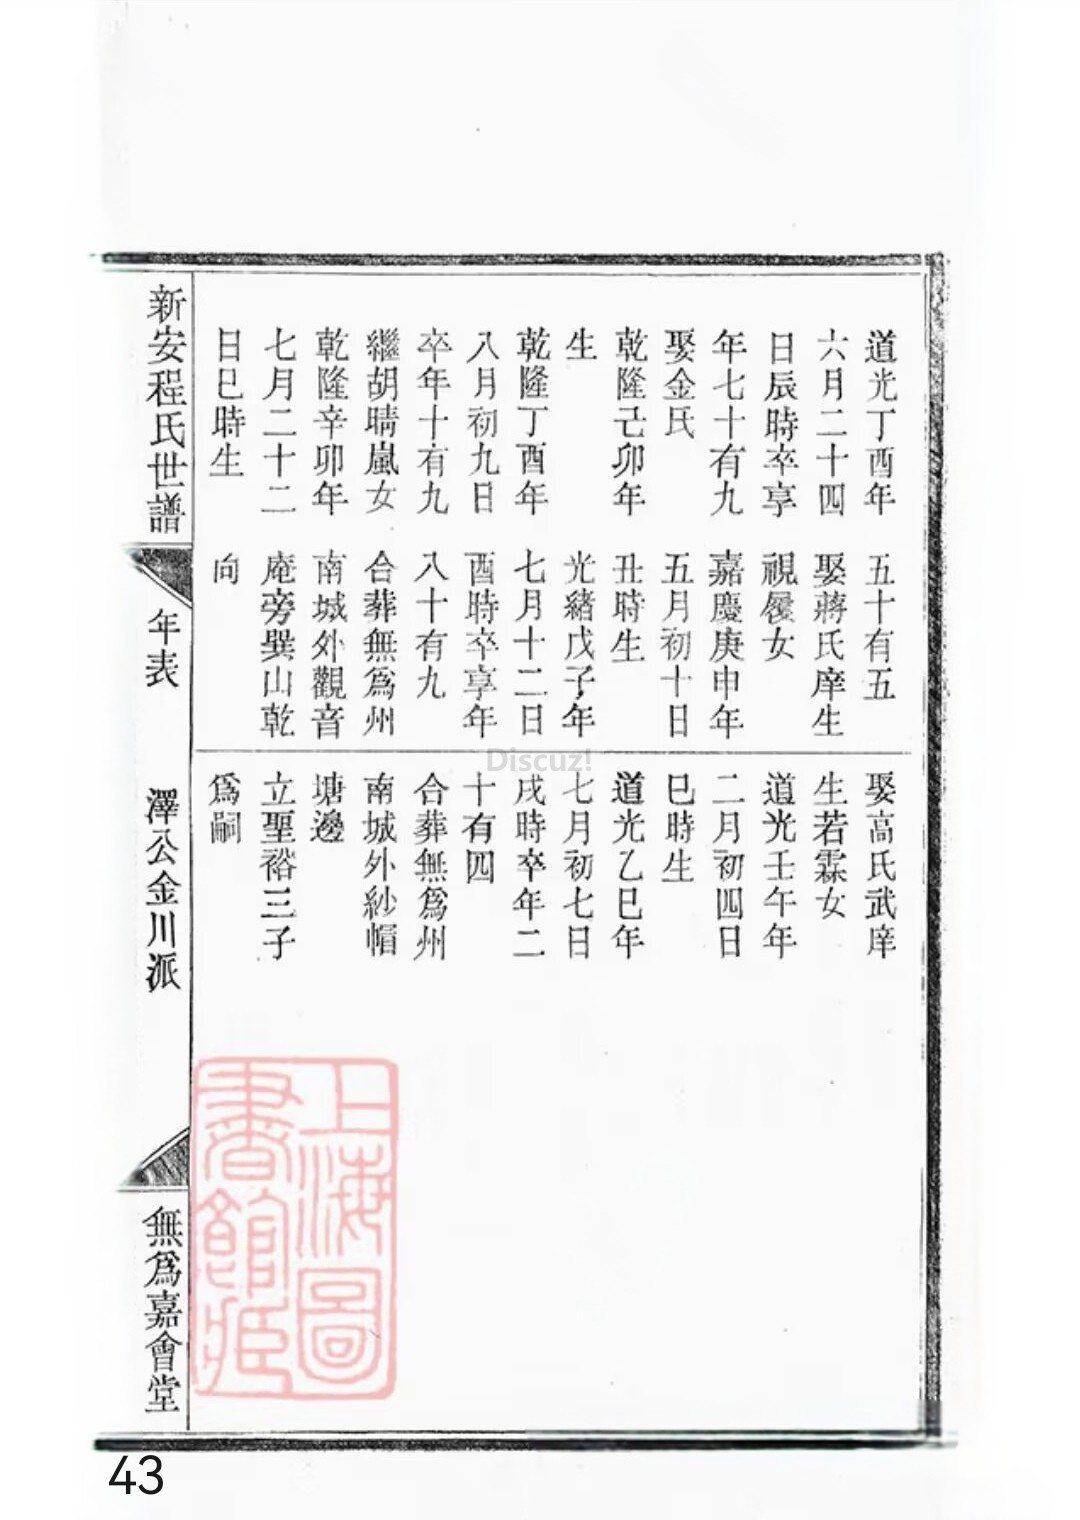 道光丁酉年
六月二十四
日辰時卒享
年七十有九
娶金氏
乾隆己卯年
生
乾隆丁酉年
八月初九日
卒年十有九
繼胡晴嵐女
乾隆辛卯年
七月二十二
日巳時生
五十有五
娶蔣氏庠生
視履女
嘉慶庚申年
五月初十日
丑時生
光緒戊子年
七月十二日
酉時卒享年
八十有九
合葬無爲州
南城外觀音
庵旁巽山乾
向
娶高氏武庠
生若霖女
道光壬午年
二月初四日
巳時生
道光乙巳年
七月初七日
戌時卒年二
十有四
合葬無爲州
南城外紗帽
塘邊
立聖裕三子
爲嗣
新安程氏世譜
年表
澤公金川派
無爲嘉會堂
上海圖
書館藏
Discuz!
43